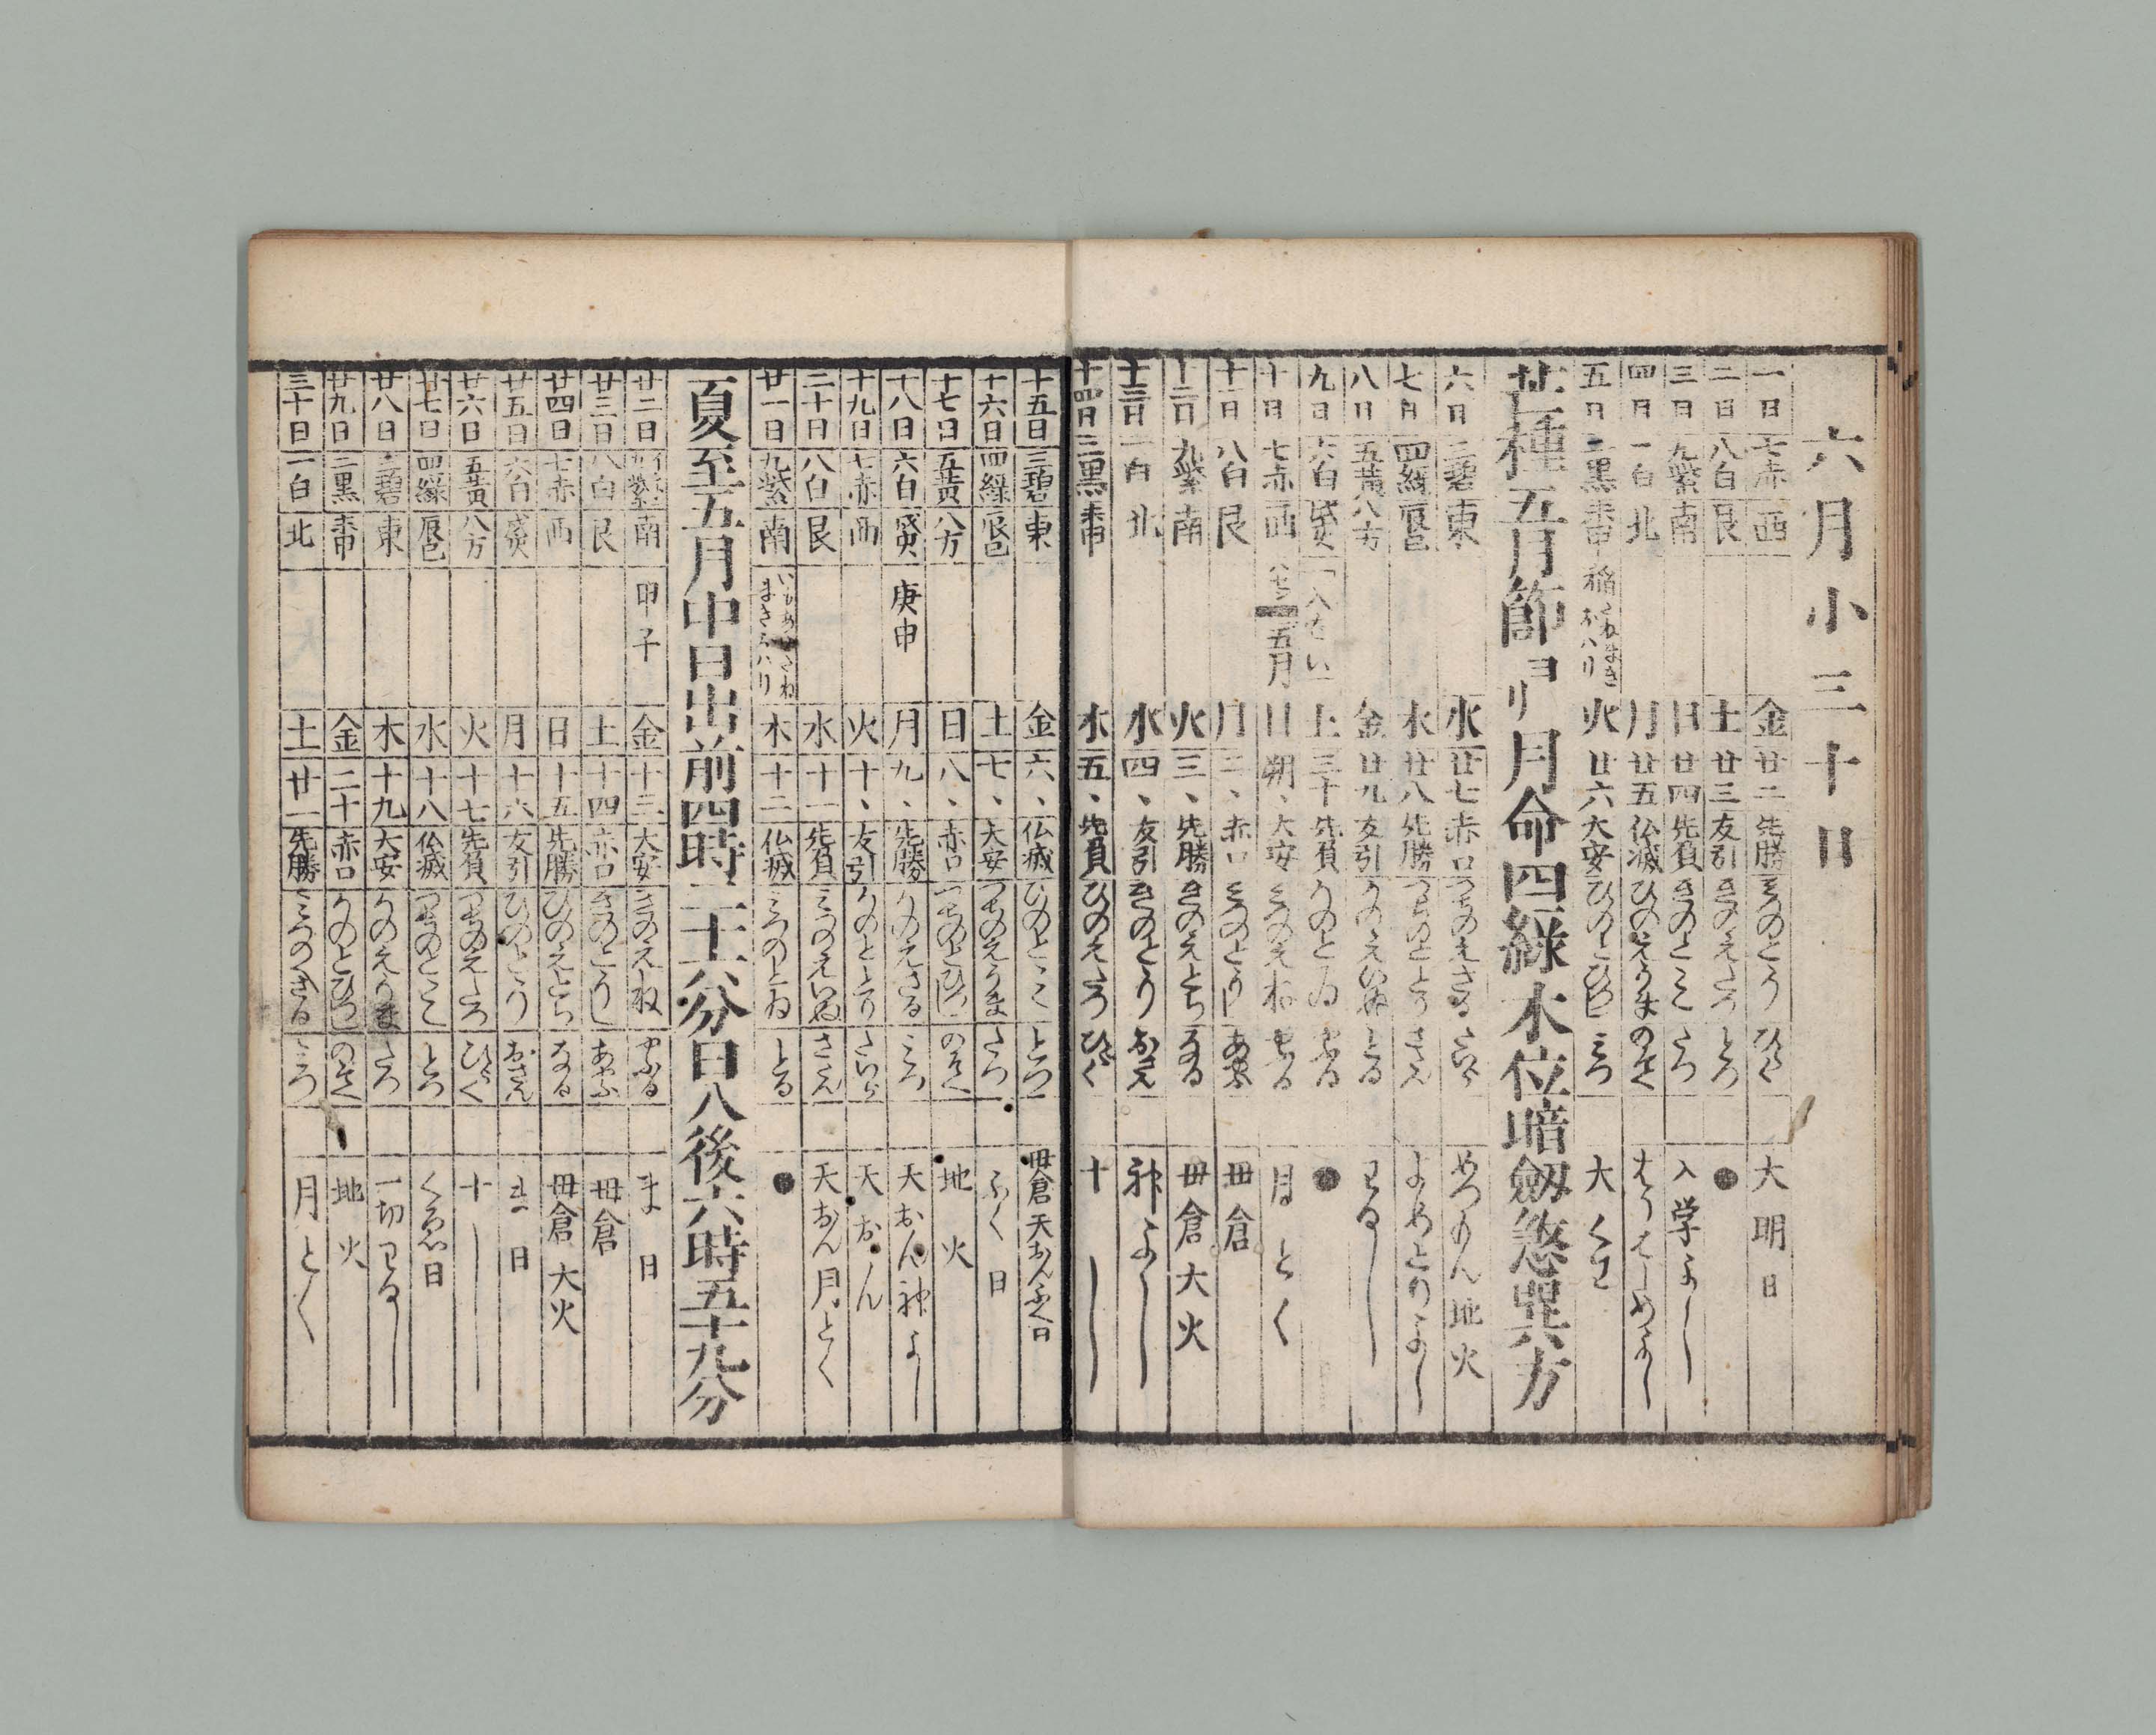 六月小三十日
一日 七赤 西 金 廿二 先勝 みつのとう ひらく 大明日
二日 八白 艮 土 廿三 友引 きのえたつ とつ ●
三日 九紫 南 日 廿四 先負 きのとみ たつ 入学よし
四日 一白 北 月 廿五 仏滅 ひのえうま のぞく
五日 二黒 火 廿六 大安 ひのとひつし みつ 大くわ
芒種五月節ヨリ月命四緑木位暗劔煞巽方
六日 三碧 東 水 廿七 赤口 つちのえさる たいら 地火
七日 四緑 辰巳 木 廿八 先勝 つちのととり さたん よめとりよし
八日 五黄 八方 金 廿九 友引 かのえいぬ とる わるし
九日 六白 戌亥 入ばい 土 三十 先負 かのとゐ やふる ●
十日 七赤 西 五月 日 朔、 大安 みつのえね やふる 月とく
十一日 八白 艮 月 二、 赤口 みつのとうし あやふ 母倉
十二日 九紫 南 火 三、 先勝 きのえとら なる 母倉 大火
十三日 一白 北 水 四、 友引 きのとう おさん 神よし
十四日 二黒 木 五、 先負 ひのえたつ ひらく 十し
十五日 三碧 東 金 六、 仏滅 ひのとみ とつ 母倉 天おん ふく日
十六日 四緑 辰巳 土 七、 大安 つちのえうま たつ ふく日
十七日 五黄 八方 日 八、 赤口 つちのとひつし のぞく 地火
十八日 六白 戌亥 庚申 月 九、 先勝 かのえさる みつ 天おん 神よし
十九日 七赤 西 火 十、 友引 かのととり たいら 天おん
二十日 八白 艮 水 十一 先負 みつのえいぬ さたん 天おん 月とく
廿一日 九紫 南 木 十二 仏滅 みつのとゐ とる ●
夏至五月中日出前四時二十六分日入後六時五十九分
廿二日 九紫 南 甲子 金 十三 大安 きのえね やふる 日
廿三日 八白 艮 土 十四 赤口 きのとうし あやふ 母倉
廿四日 七赤 西 日 十五 先勝 ひのえとら なる 母倉 大火
廿五日 六白 戌亥 月 十六 友引 ひのとう おさん 日
廿六日 五黄 八方 火 十七 先負 つちのえたつ ひらく 十し
廿七日 四緑 辰巳 水 十八 仏滅 つちのとみ とつ くゑ日
廿八日 三碧 東 木 十九 大安 かのえうま たつ 一切わるし
廿九日 二黒 金 二十 赤口 かのとひつし のぞく 地火
三十日 一白 北 土 廿一 先勝 みつのえさる みつ 月とく